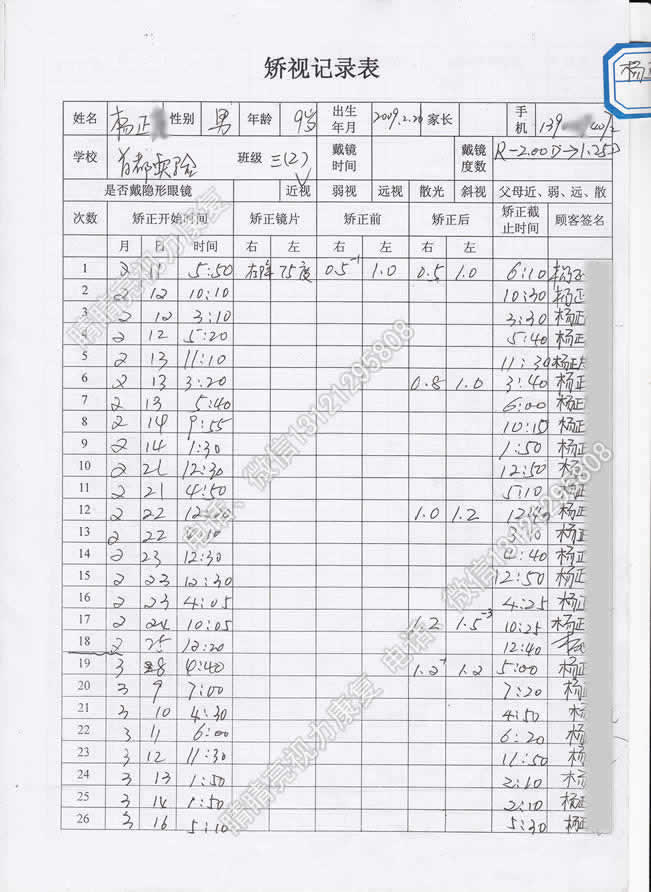 矫视记录表
杨
姓名 杨正 性别 男 年龄 9岁 出生年月 2009.2.20 家长 手机 139 40
学校 首都实验 班级 三(2) 戴镜时间 戴镜度数 R-2.00D→1.25D
是否戴隐形眼镜 近视 弱视 远视 散光 斜视 父母近、弱、远、散
次数 矫正开始时间 矫正镜片 矫正前 矫正后 矫正截止时间 顾客签名
月 日 时间 右 左 右 左 右 左
1 2 11 5:50 右降 75度 0.5⁻¹ 1.0 0.5 1.0 6:10 杨正
2 2 12 10:10 10:30 杨正
3 2 12 3:10 3:30 杨正
4 2 12 5:20 5:40 杨正
5 2 13 11:10 11:30 杨正
6 2 13 3:20 0.8 1.0 3:40 杨正
7 2 13 5:40 6:00 杨正
8 2 14 9:55 10:15 杨正
9 2 14 1:30 1:50 杨正
10 2 21 12:30 12:50 杨
11 2 21 4:50 5:10 杨正
12 2 22 1.0 1.2 杨正
13 2 22 杨正
14 2 23 12:30 杨正
15 2 23 12:30 12:50 杨正
16 2 23 4:05 4:25 杨正
17 2 24 10:05 1.2 1.5⁻³ 10:25 杨正
18 2 25 12:20 12:40
19 3 8 4:40 1.2⁻¹ 1.2 5:00 杨正
20 3 9 7:00 7:20 杨
21 3 10 4:30 4:50 杨
22 3 11 6:00 6:20 杨
23 3 12 11:30 11:50 杨
24 3 13 1:50 2:10 杨
25 3 14 1:50 2:10 杨正
26 3 16 5:10 5:30 杨正
睛睛亮视力康复 电话、微信13121295808
睛睛亮视力康复 电话、微信13121295808